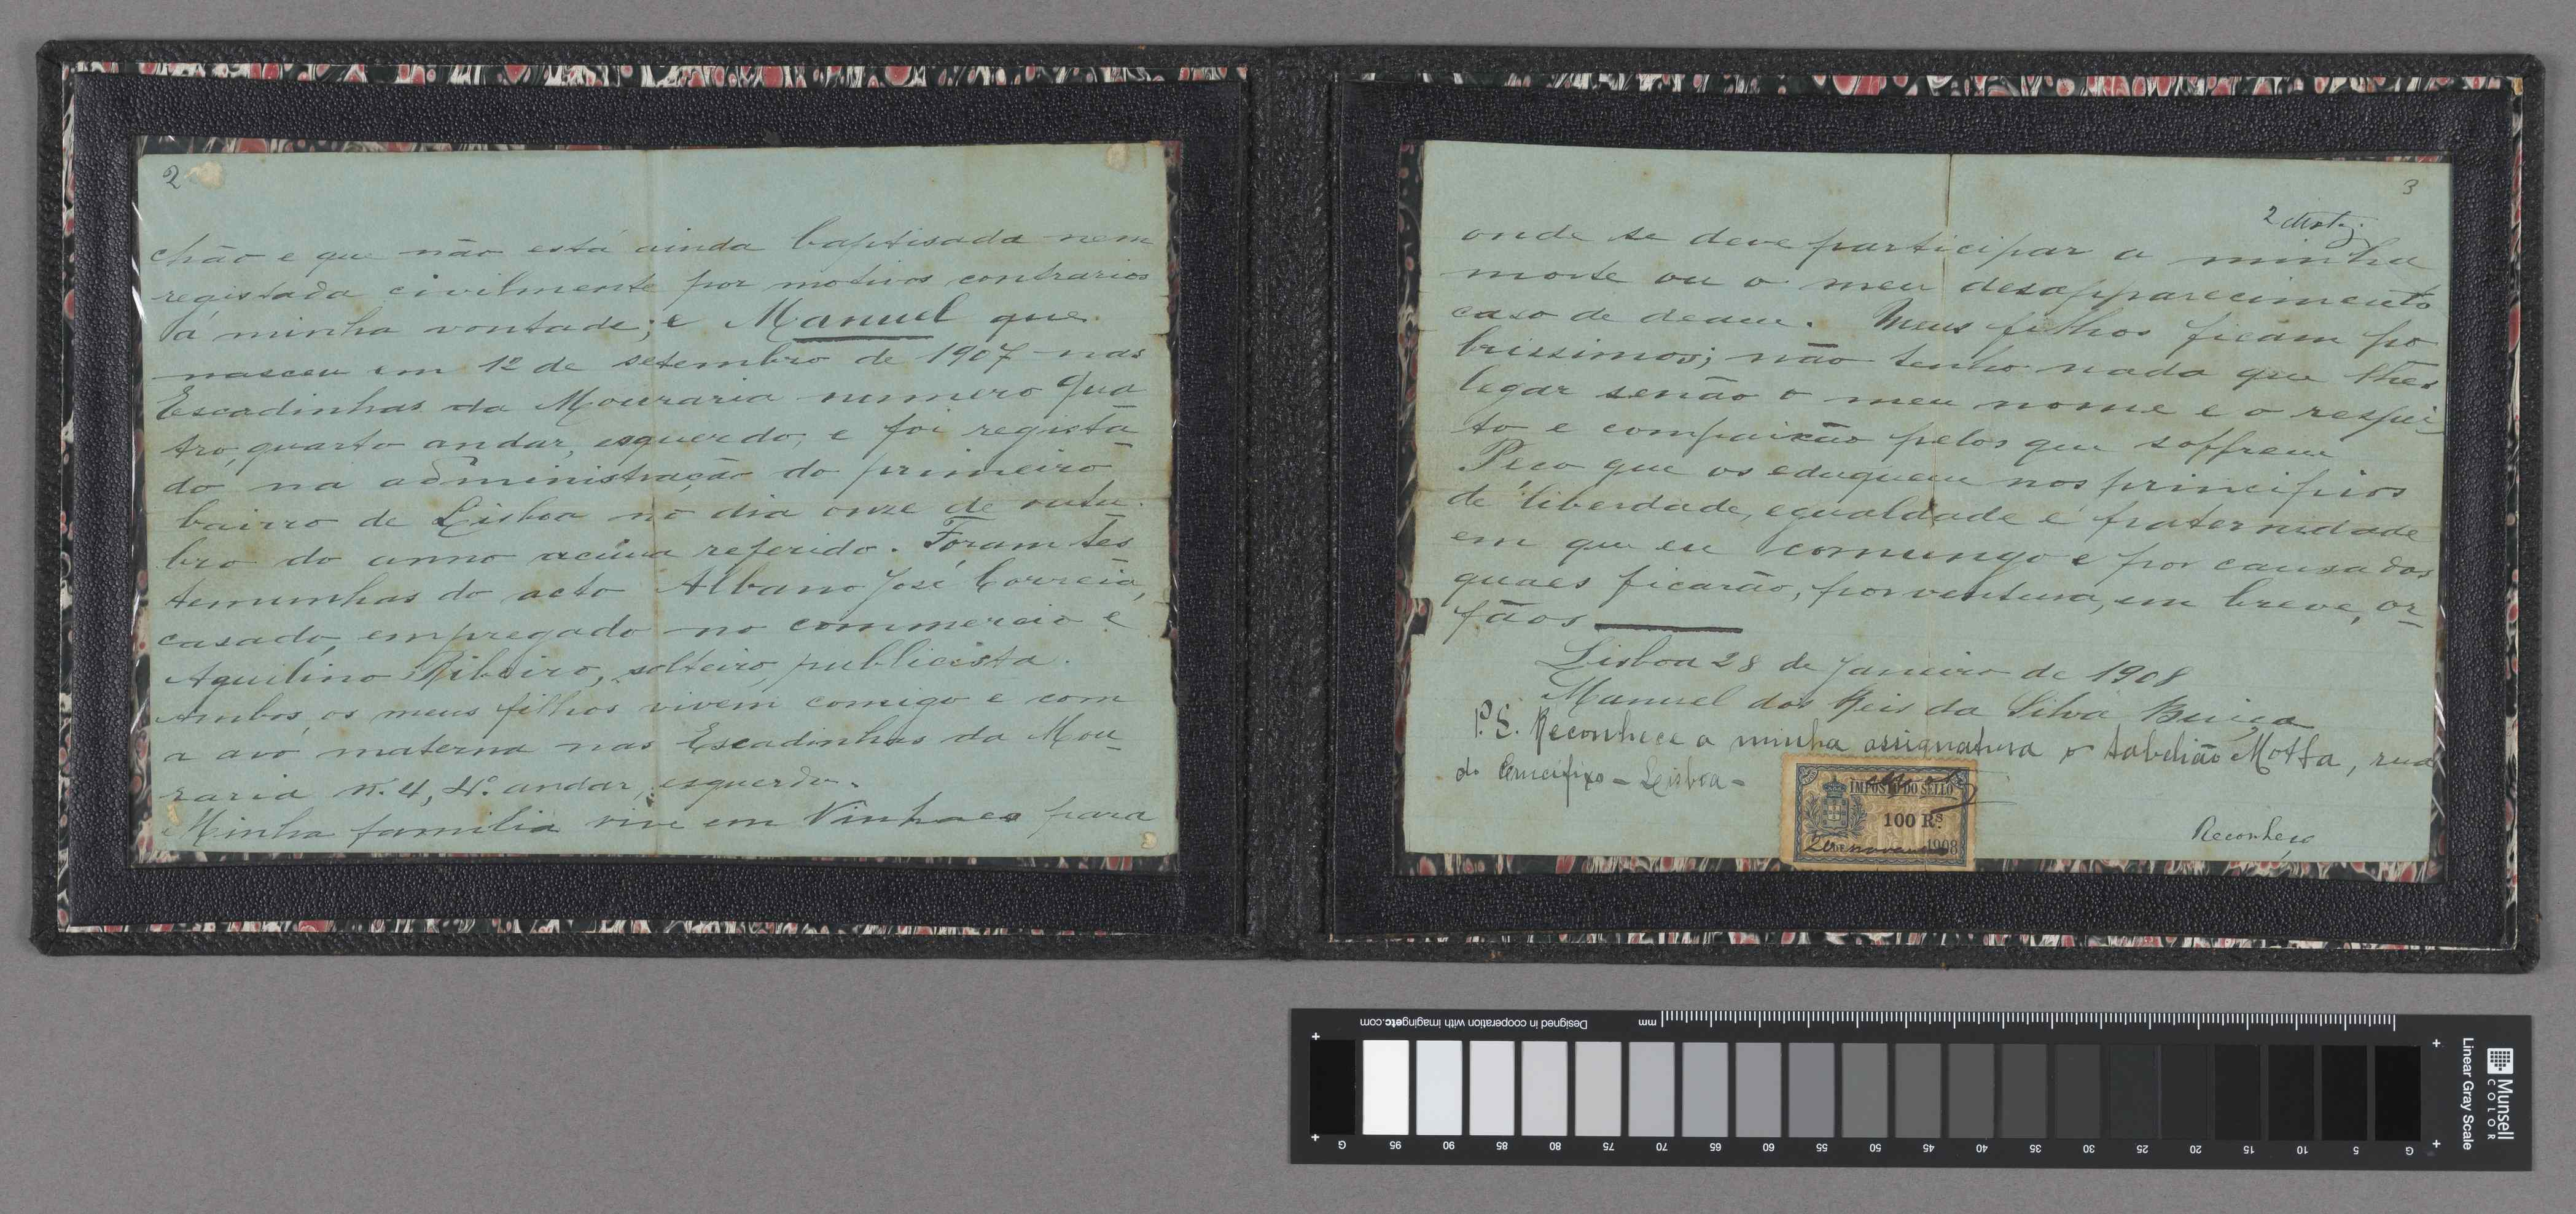 2
chão e que não está ainda baptisada nem
registada civilmente por motivos contrarios
á minha vontade; e Manuel que
nasceu em 12 de setembro de 1907 nas
Escadinhas da Mouraria numero qua
tro, quarto andar, esquerdo, e foi regista-
do na administração do primeiro
bairro de Lisboa no dia onze de outu-
bro do anno acima referido. Foram tes
temunhas do acto Albano José Correia,
casado, empregado no commercio e
Aquilino Ribeiro, solteiro, publicista.
Ambos os meus filhos vivem comigo e com
a avó materna nas Escadinhas da Mou-
raria n.º 4, 4.º andar, esquerdo.
Minha familia vive em Vinhaes para
3
onde se deve participar a minha
morte ou o meu desapparecimento
caso se deem. Meus filhos ficam po
brissimos; não tenho nada que lhes
legar senão o meu nome e o respei
to e compaixão pelos que soffrem
Peço que os eduquem nos principios
de liberdade, egualdade e fraternidade
em que eu commungo e por causa dos
quaes ficarão, porventura, em breve, or-
fãos
Lisboa 28 de Janeiro de 1908
Manuel dos Reis da Silva Buiça
P.S. Reconhece a minha assignatura o tabelião Motta, rua
do Crucifixo - Lisboa -
IMPOSTO DO SELLO
100 Rs.
1908
Reconheço
Designed in cooperation with imagingetc.com
mm
Munsell
COLOR
Linear Gray Scale
G 95 90 85 80 75 70 65 60 55 50 45 40 35 30 25 20 15 10 5 G